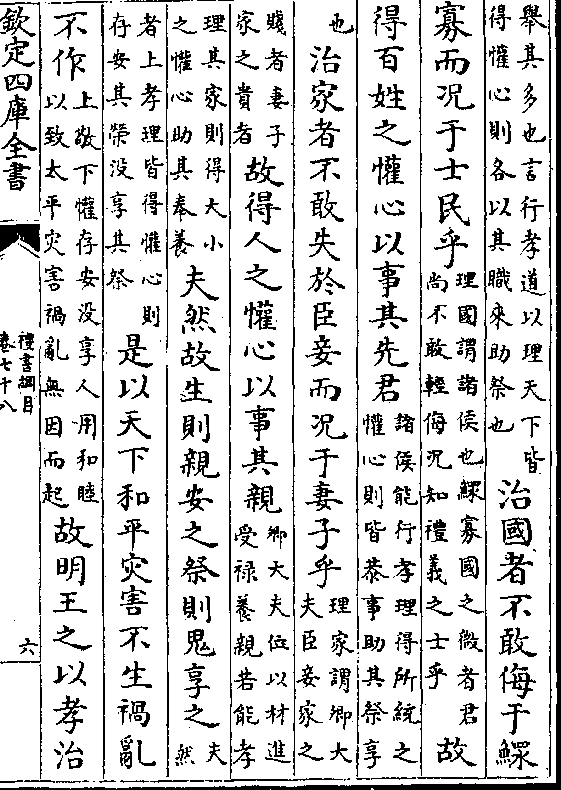 舉其多也言行孝道以理天下皆
得懽心則各以其職來助祭也
治國者不敢侮于鰥
寡而况于士民乎
理國謂諸侯也鰥寡國之微者君
尚不敢輕侮况知禮義之士乎
故
得百姓之懽心以事其先君
諸侯能行孝理得所統之
懽心則皆恭事助其祭享
也
治家者不敢失於臣妾而况于妻子乎
理家謂卿大
夫臣妾家之
賤者妻子
家之貴者
故得人之懽心以事其親
卿大夫位以材進
受祿養親若能孝
理其家則得大小
之懽心助其奉養
夫然故生則親安之祭則鬼享之
夫
然
者上孝理皆得懽心則
存安其榮没享其祭
是以天下和平灾害不生禍亂
不作
上敬下懽存安没享人用和睦
以致太平灾害禍亂無因而起
故明王之以孝治
欽定四庫全書
禮書綱目
卷七十八
六